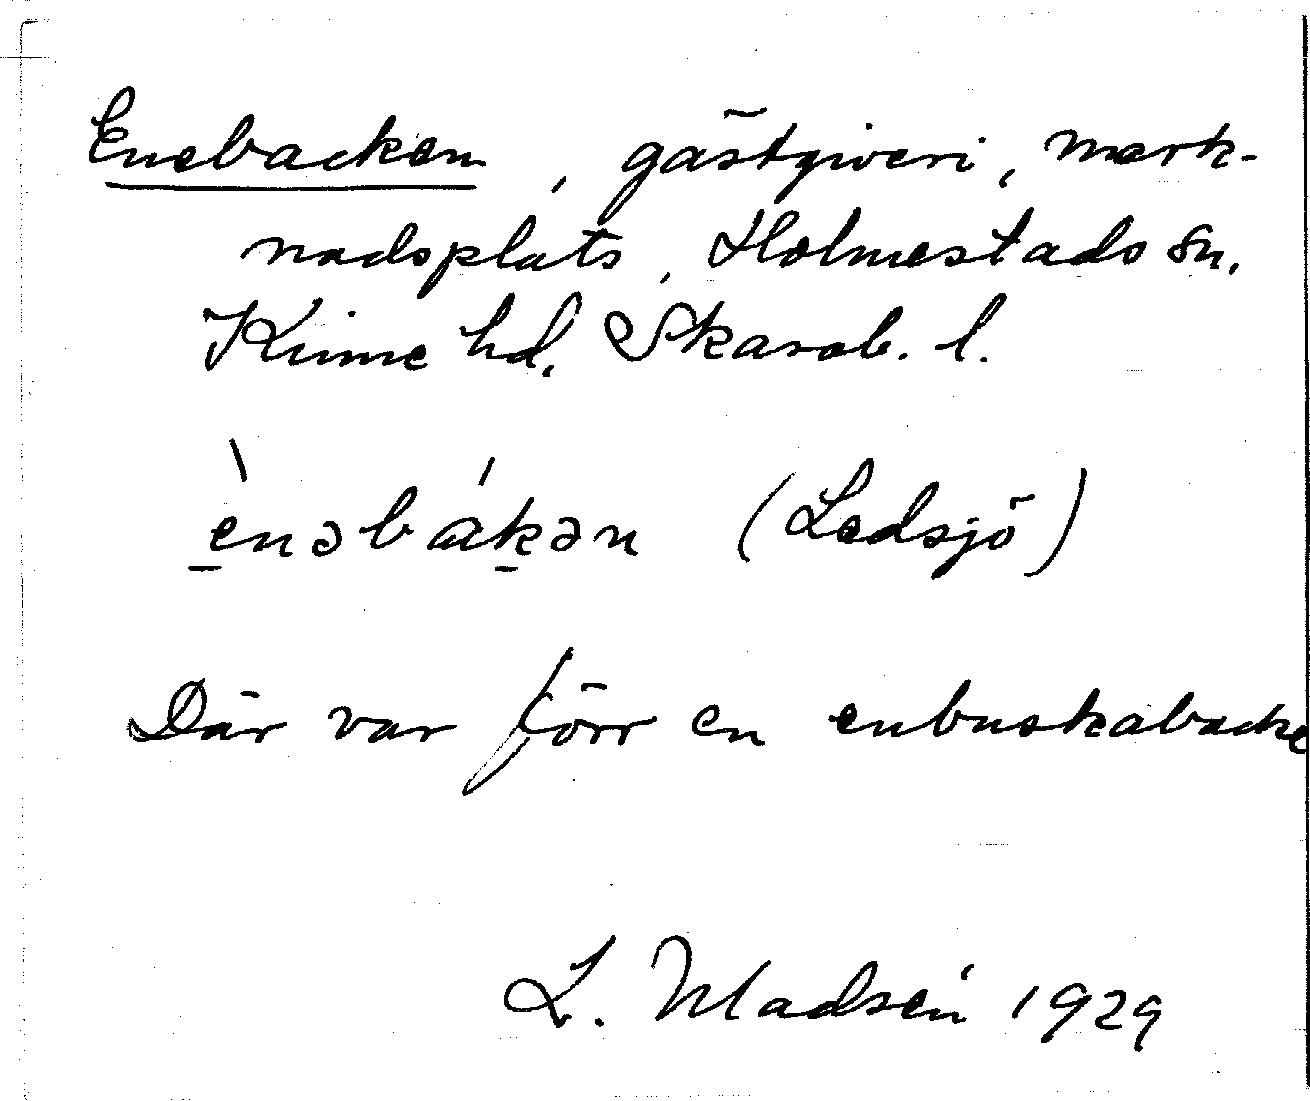 Enebacken, gästgiveri, mark-
nadsplats, Holmestads sn.
Kinne hd. Skarab. l.
è̱nəbák̠ən (Ledsjö)
Där var förr en enbuskabacke
L. Madsén 1929